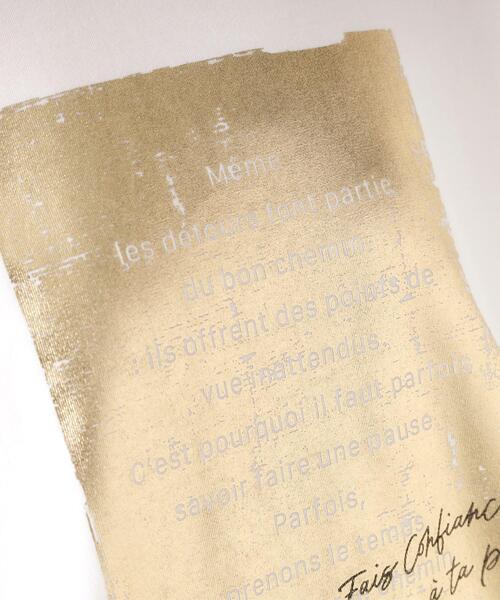 Même
les détours font partie
du bon chemin
: ils offrent des points de
vue inattendus.
C'est pourquoi il faut parfois
savoir faire une pause.
Parfois,
prenons le temps
chemin
Fais Confiance
à ta p